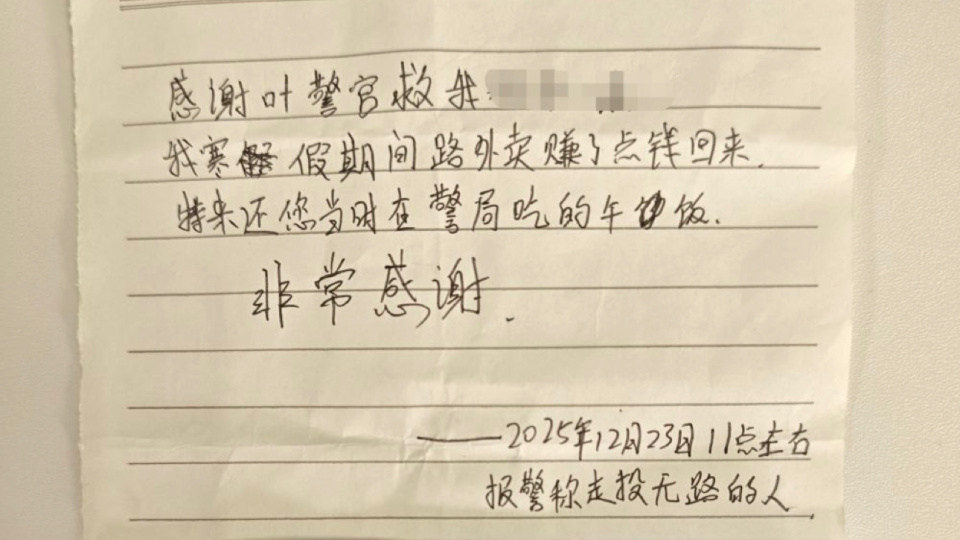 感谢叶警官救我
我寒假期间路外卖赚了点钱回来.
特来还您当时在警局吃的午饭.
非常感谢.
——2025年12月23日11点左右
报警称走投无路的人.